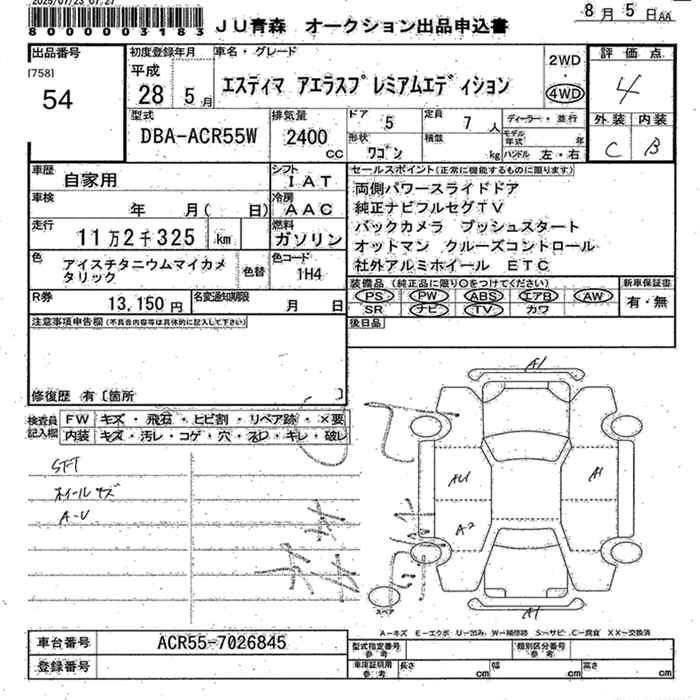 2025/07/23 07:27
80000003183
JU青森 オークション出品申込書
8月 5日AA
出品番号
[758]
54
初度登録年月
平成
28 5月
車名・グレード
エスティマ アエラスプレミアムエディション
2WD
・
4WD
評価点
4
外装 内装
C B
型式
DBA-ACR55W
排気量
2400
CC
ドア 5
定員 7人
ディーラー・並行
形状
ワゴン
積載
kg
モデル年式 年
ハンドル 左・右
車歴
自家用
シフト
IAT
車検
年 月( 日)
冷房
AAC
走行
11万2千325 km
燃料
ガソリン
色
アイスチタニウムマイカメタリック
色替
色コード
1H4
R券
13,150円
名変通知期限
月 日
セールスポイント(正常に機能するものに限ります)
両側パワースライドドア
純正ナビフルセグTV
バックカメラ プッシュスタート
オットマン クルーズコントロール
社外アルミホイール ETC
装備品 (純正品に限り○をつけてください)
PS PW ABS エアB AW
SR ナビ TV カワ
新車保証書
有・無
後日品
注意事項申告欄(不具合内容等は具体的に記入して下さい)
修復歴 有〔箇所 〕
検査員記入欄
FW キズ・飛石・ヒビ割・リペア跡・×要
内装 キズ・汚レ・コゲ・穴・スレ・キレ・破レ
ホイールキズ
A-U
A1
AU
A1
A2
A1
スペア
A―キズ E―エクボ U―凹み W―補修跡 S―サビ C―腐食 XX―交換済
車台番号
ACR55-7026845
登録番号
型式指定番号
参考
類別区分番号
参考
車庫証明用
参考
長さ cm
幅 cm
高さ cm